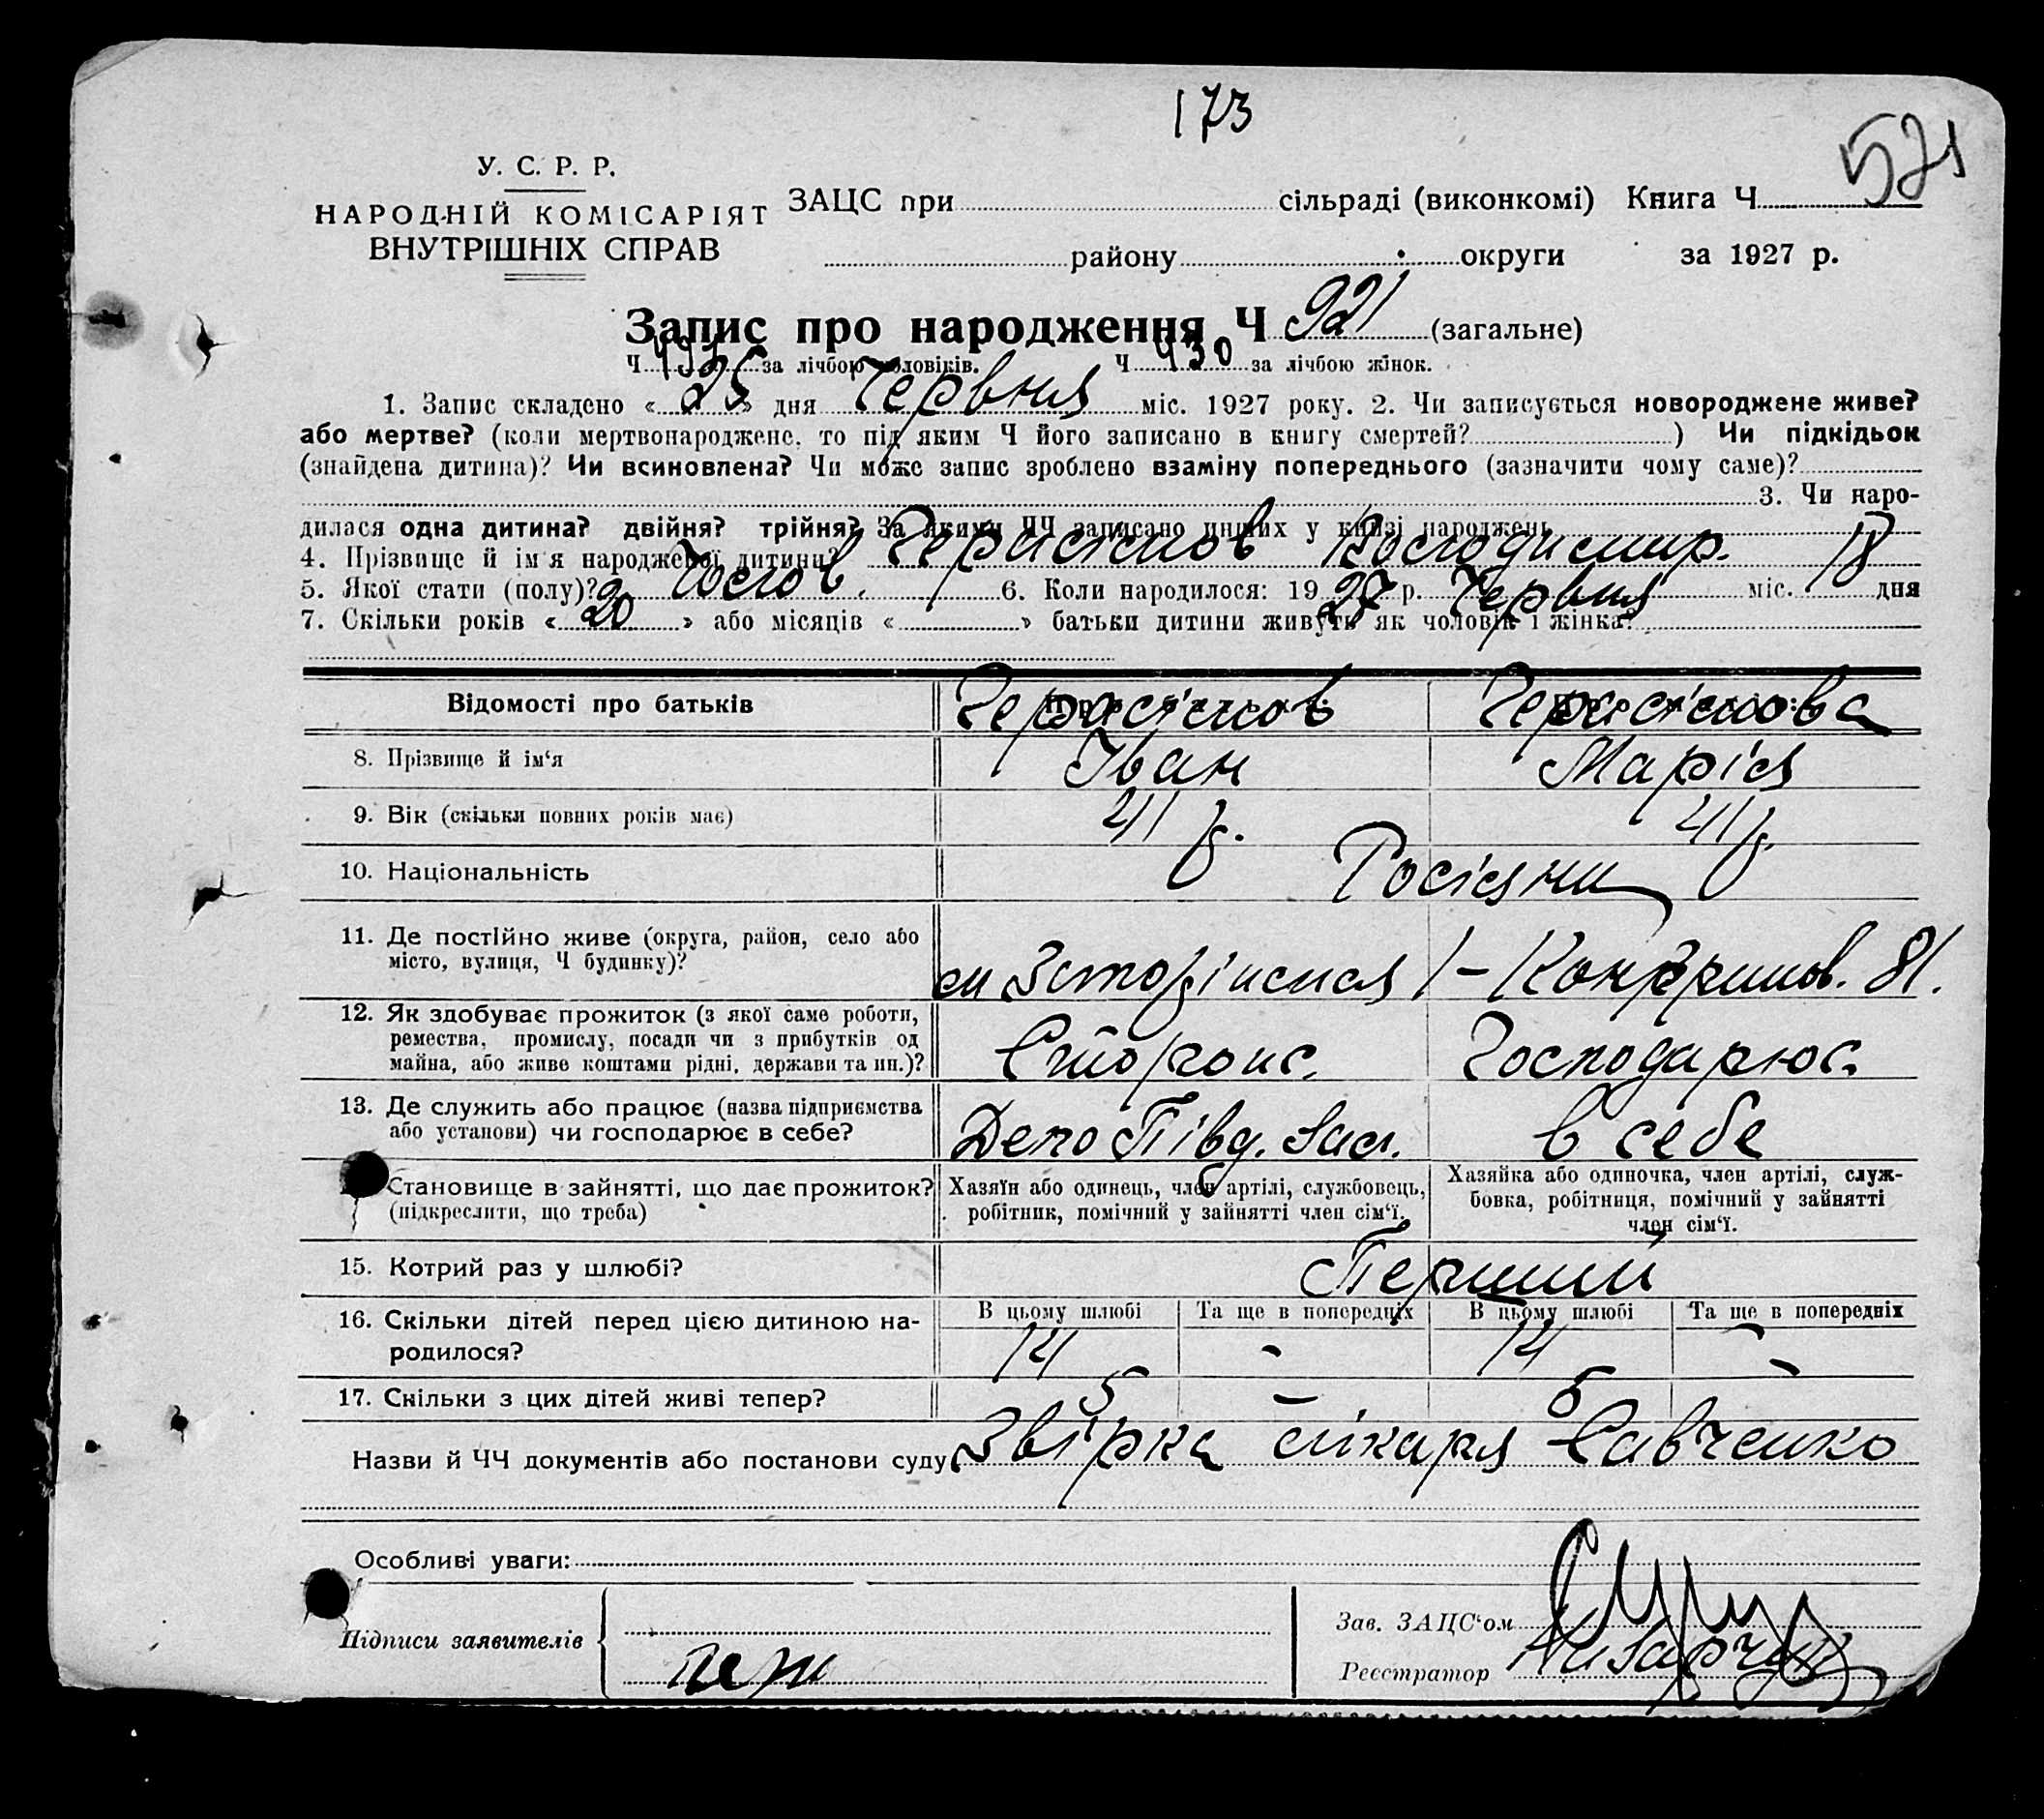 173
521
У. С. Р. Р.
НАРОДНІЙ КОМІСАРІЯТ
ВНУТРІШНІХ СПРАВ
ЗАЦС при сільраді (виконкомі) Книга Ч
району округи за 1927 р.
Запис про народження Ч 921 (загальне)
Ч за лічбою чоловіків. Ч 430 за лічбою жінок.
1. Запис складено « 25 » дня Червня міс. 1927 року. 2. Чи записується новороджене живе?
або мертве? (коли мертвонароджене, то під яким Ч його записано в книгу смертей? ) Чи підкідьок
(знайдена дитина)? Чи всиновлена? Чи може запис зроблено взаміну попереднього (зазначити чому саме)?
3. Чи наро-
дилася одна дитина? двійня? трійня? За якими ЧЧ записано инших у книзі народжень
4. Прізвище й ім'я народженої дитини? Герасімов Володимир.
5. Якої стати (полу)? Чолов. 6. Коли народилося: 1927 р. Червня міс. 18 дня
7. Скільки років « 20 » або місяців « » батьки дитини живуть як чоловік і жінка?
Відомості про батьків Герасімов Герасімова
8. Прізвище й ім‘я Іван Марія
9. Вік (скільки повних років має) 41 р. 41 р.
10. Національність Росіяни
11. Де постійно живе (округа, район, село або
місто, вулиця, Ч будинку)? 81.
12. Як здобуває прожиток (з якої саме роботи,
ремества, промислу, посади чи з прибутків од
майна, або живе коштами рідні, держави та ин.)? Сторож. Господарює.
13. Де служить або працює (назва підприємства
або установи) чи господарює в себе? Депо Півд. Зал. в себе
Становище в зайнятті, що дає прожиток?
(підкреслити, що треба)
Хазяїн або одинець, член артілі, службовець,
робітник, помічний у зайнятті член сім‘ї.
Хазяйка або одиночка, член артілі, служ-
бовка, робітниця, помічний у зайнятті
член сім‘ї.
15. Котрий раз у шлюбі? Перший
16. Скільки дітей перед цією дитиною на-
родилося?
В цьому шлюбі Та ще в попередніх В цьому шлюбі Та ще в попередніх
14 - 14 -
17. Скільки з цих дітей живі тепер? 5 - 5 -
Назви й ЧЧ документів або постанови суду Звірка лікаря Савченко
Особливі уваги:
Підписи заявителів
Зав. ЗАЦС‘ом
Реєстратор